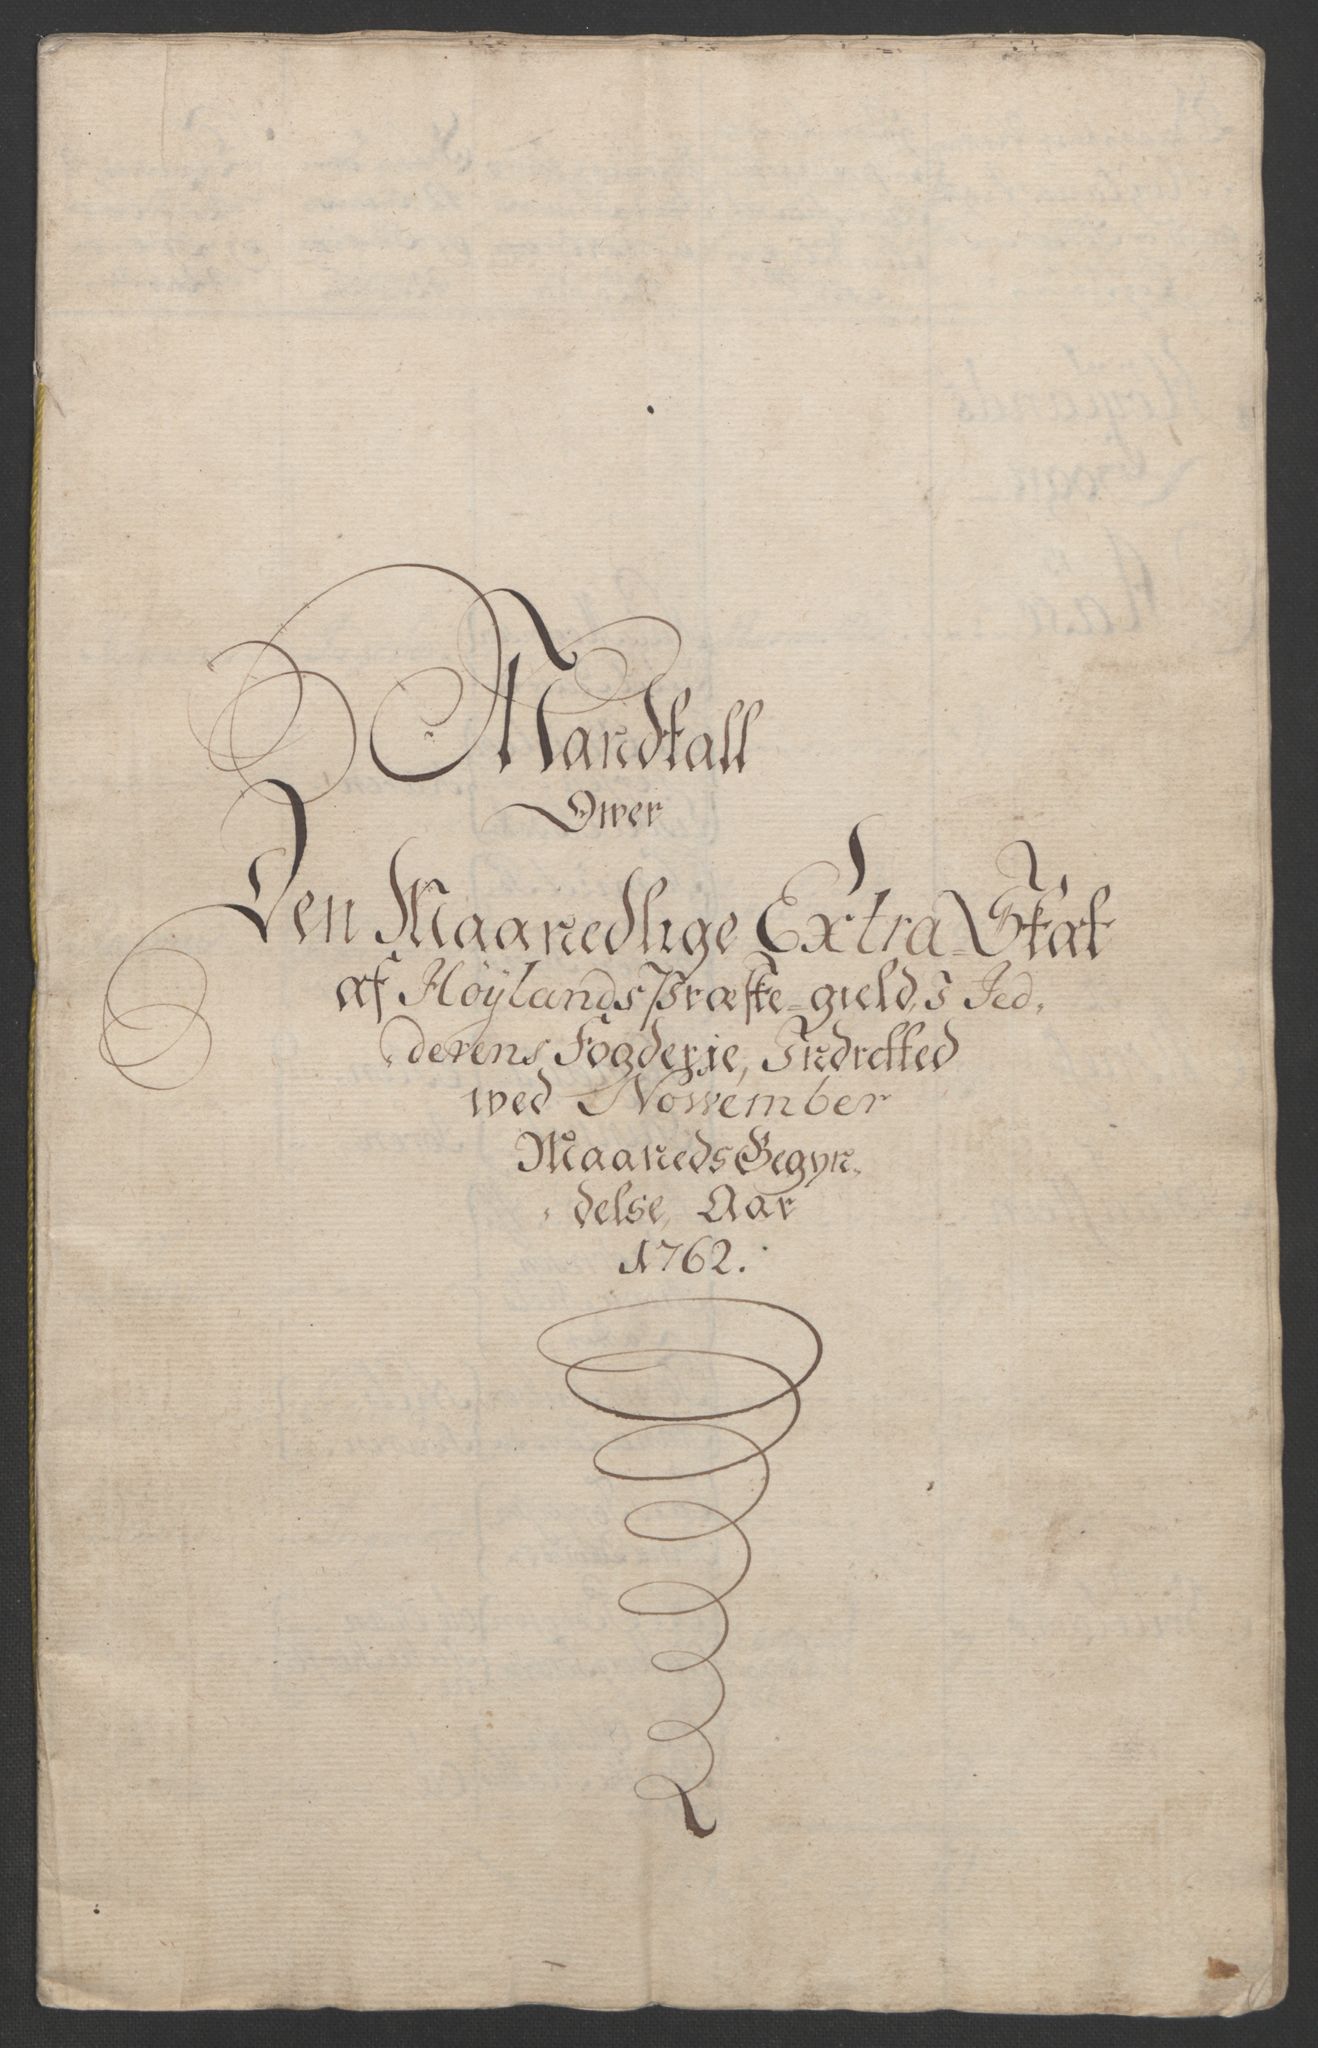 Mandtall
Over
Den Maanedlige Extra-Skat
af Høÿlands Præste-gield, I Jed-
derens Fogderie, Indretted
wed November
Maaneds Begyn-
delse, Aar
1762.